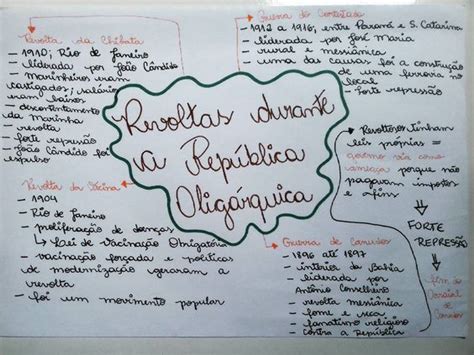 Revoltas durante
a República
Oligárquica
Revolta da Chibata
- 1910; Rio de Janeiro
- liderada por João Cândido
- Marinheiros eram
castigados; salários
baixos
- descontentamento
da Marinha
- revolta
- forte repressão
- João Cândido foi
expulso
Guerra do Contestado
- 1912 a 1916; entre Paraná e S. Catarina
- liderada por José Maria
- rural e messiânica
- uma das causas foi a construção
de uma ferrovia no
local
- forte repressão
Revolta da Vacina
- 1904
- Rio de Janeiro
- proliferação de doenças
↳ Lei de Vacinação Obrigatória
- vacinação forçada e políticas
de modernização geraram a
revolta
- foi um movimento popular
Guerra de Canudos
- 1896 até 1897
- interior da Bahia
- liderada por
Antônio Conselheiro
- revolta messiânica
- fome e seca
- fanatismo religioso
- contra a República
Revoltosos tinham
leis próprias =
governo via como
ameaça porque não
pagavam impostos
e afins
FORTE
REPRESSÃO
fim do
Arraial de
Canudos